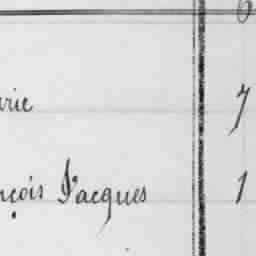 6
rie 7
nçois Jacques 1